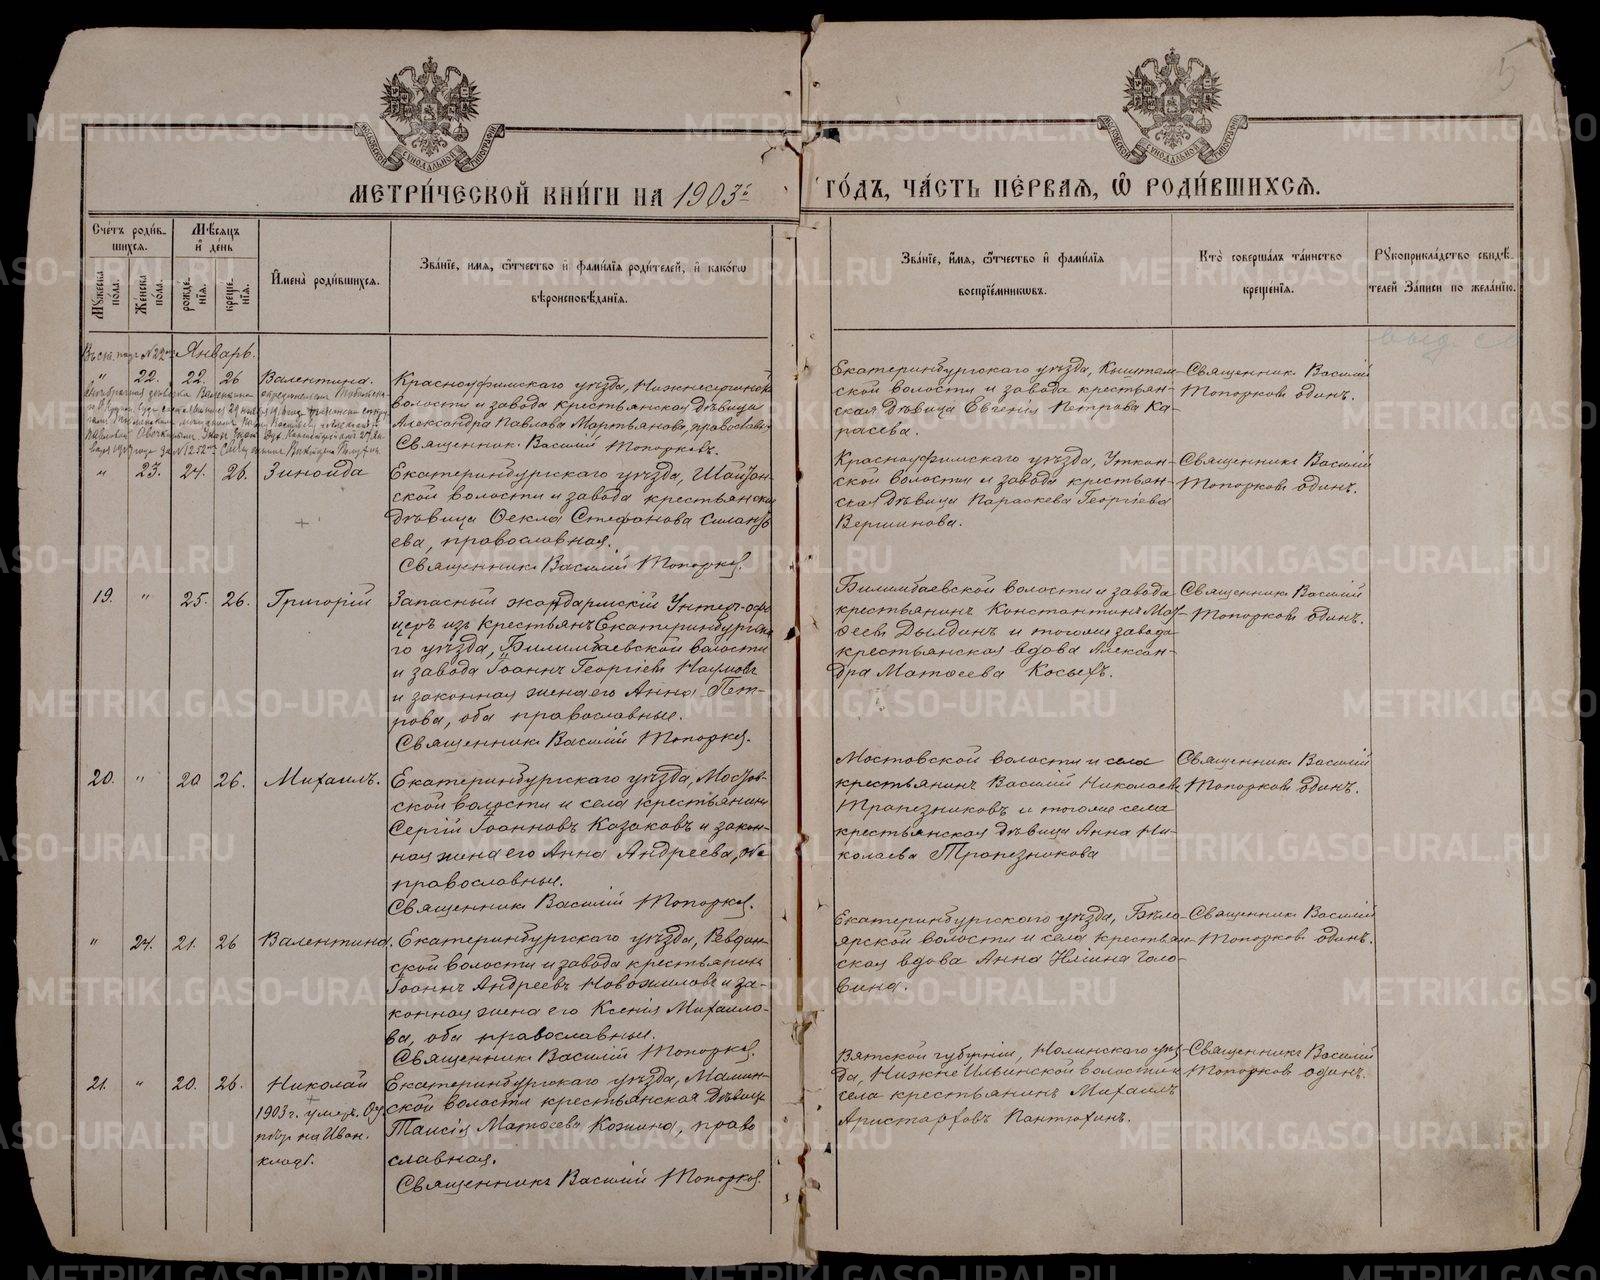 5
МОСКОВСКОЙ СѴНОДАЛЬНОЙ ТИПОГРАФІИ
МОСКОВСКОЙ СѴНОДАЛЬНОЙ ТИПОГРАФІИ
МЕТРИ́ЧЕСКОЙ КНИ́ГИ НА 1903й ГО́ДЪ, ЧА́СТЬ ПЕ́РВАЯ, Ѡ РОДИ́ВШИХСЯ.
Сче́тъ роди́в-
шихся.
Мѣ́сяцъ
и де́нь
Му́жеска
по́ла.
Же́нска
по́ла.
рожде-
нія.
креще-
нія.
Имена̀ роди́вшихся.
Зва́ніе, имя, ѻ҆́тчество и фами́лія роди́телей, и како́гѡ
вѣроисповѣ́данія.
Зва́ніе, и́мя, ѻ҆́тчество и фами́лія
воспріе́мниковъ.
Кто̀ соверша́лъ та́инство
креще́нія.
Рукоприкла́дство свидѣ́-
телей за́писи по жела́нію.
Январь.
" 22. 22. 26 Валентина.
Красноуфимскаго уѣзда, Нижнесергинской
волости и завода крестьянская дѣвица
Александра Павлова Мартьянова, православн.
Священник Василій Топорков.
Екатеринбургскаго уѣзда, Кыштым-
ской волости и завода крестьян-
ская дѣвица Евгенія Петрова Ка-
расева.
Священник Василій
Топорков один.
" 23. 24. 26. Зиноида
Екатеринбургскаго уѣзда, Шайтан-
ской волости и завода крестьянская
дѣвица Ѳекла Стефанова Силанть-
ева, православная.
Священник Василій Топорков.
Красноуфимскаго уѣзда, Уткин-
ской волости и завода крестьян-
ская дѣвица Параскева Георгіева
Вершинова.
Священник Василій
Топорков один.
19. " 25. 26. Григорій
Запасный жандармскій Унтер-офи-
церъ изъ крестьян Екатеринбургска-
го уѣзда, Билимбаевской волости
и завода Іоанн Георгіев Наумов
и законная жена его Анна Пет-
рова, оба православные.
Священник Василій Топорков.
Билимбаевской волости и завода
крестьянин Константин Мат-
ѳеев Дылдин и тогоже завода
крестьянская вдова Алексан-
дра Матѳеева Косыхъ.
Священник Василій
Топорков один.
20. " 20 26. Михаилъ.
Екатеринбургскаго уѣзда, Мостов-
ской волости и села крестьянин
Сергій Іоанновъ Казаковъ и закон-
ная жена его Анна Андреева, оба
православные.
Священник Василій Топорков.
Мостовской волости и села
крестьянин Василій Николаев
Трапезниковъ и тогоже села
крестьянская дѣвица Анна Ни-
колаева Трапезникова
Священник Василій
Топорков один.
" 24. 21. 26 Валентина.
Екатеринбургскаго уѣзда, Ревдин-
ской волости и завода крестьянин
Іоанн Андреевъ Новожилов и за-
конная жена его Ксенія Михаило-
ва, оба православные.
Священник Василій Топорков.
Екатеринбургскаго уѣзда, Бѣло-
ярской волости и села крестьян-
ская вдова Анна Ильина Голо-
вина.
Священник Василій
Топорков один.
21. " 20. 26. Николай
1903 г. умеръ.
на Иван.
кладб.
Екатеринбургскаго уѣзда, Мамин-
ской волости крестьянская дѣвица
Таисія Матѳеева Кожина, право
славная.
Священникъ Василій Топорков.
Вятской губерніи, Нолинскаго уѣз-
да, Нижне Ильинской волости и
села крестьянин Михаилъ
Аристарховъ Пантюхин.
Священник Василій
Топорков один.
METRIKI.GASO-URAL.RU